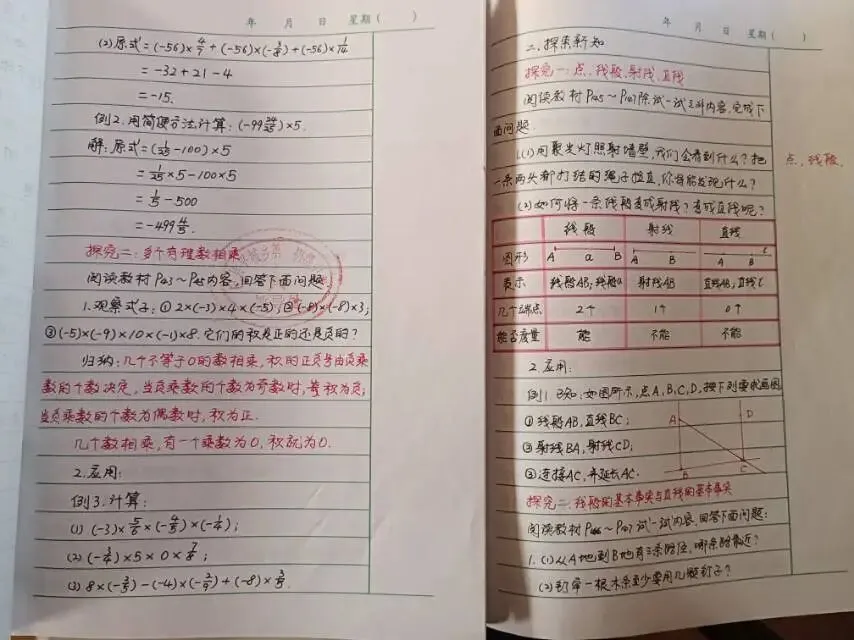 年 月 日 星期( )
(2)原式=(-56)×4/7+(-56)×(-3/8)+(-56)×1/14
=-32+21-4
=-15.
例2.用简便方法计算:(-99 24/25)×5.
解:原式=(1/25-100)×5
=1/25×5-100×5
=1/5-500
=-499 4/5.
探究二:多个有理数相乘
阅读教材P43~P45内容,回答下面问题.
1.观察式子:①2×(-3)×4×(-5);②(-8)×(-8)×3;
③(-5)×(-9)×10×(-1)×8.它们的积是正的还是负的?
归纳:几个不等于0的数相乘,积的正负号由负乘
数的个数决定,当负乘数的个数为奇数时,积为负;
当负乘数的个数为偶数时,积为正.
几个数相乘,有一个乘数为0,积就为0.
2.应用:
例3.计算:
(1)(-3)×5/6×(-4/5)×(-1/4);
(2)(-3/4)×5×0×7/8;
(3)8×(-3/5)-(-4)×(-2/9)+(-8)×3/5.
年 月 日 星期( )
二、探索新知
探究一:点、线段、射线、直线
阅读教材P125~P127除试一试之外内容,完成下
面问题.
1.(1)用聚光灯照射墙壁,我们会看到什么?把
一条两头都打结的绳子拉直,你能发现什么?
点、线段.
(2)如何将一条线段变成射线?变成直线呢?
线段 射线 直线
图形 A a B A B A B l
表示 线段AB;线段a 射线AB 直线AB;直线l
几个端点 2个 1个 0个
能否度量 能 不能 不能
2.应用:
例1.已知,如图所示,点A,B,C,D,按下列要求画图
①线段AB,直线BC;
②射线BA,射线CD;
③连接AC,并延长AC.
A D
B C
探究二、线段的基本事实与直线的基本事实
阅读教材P126~P127试一试内容,回答下面问题:
1.(1)从A地到B地有三条路径,哪条路最近?
(2)钉牢一根木条至少要用几颗钉子?